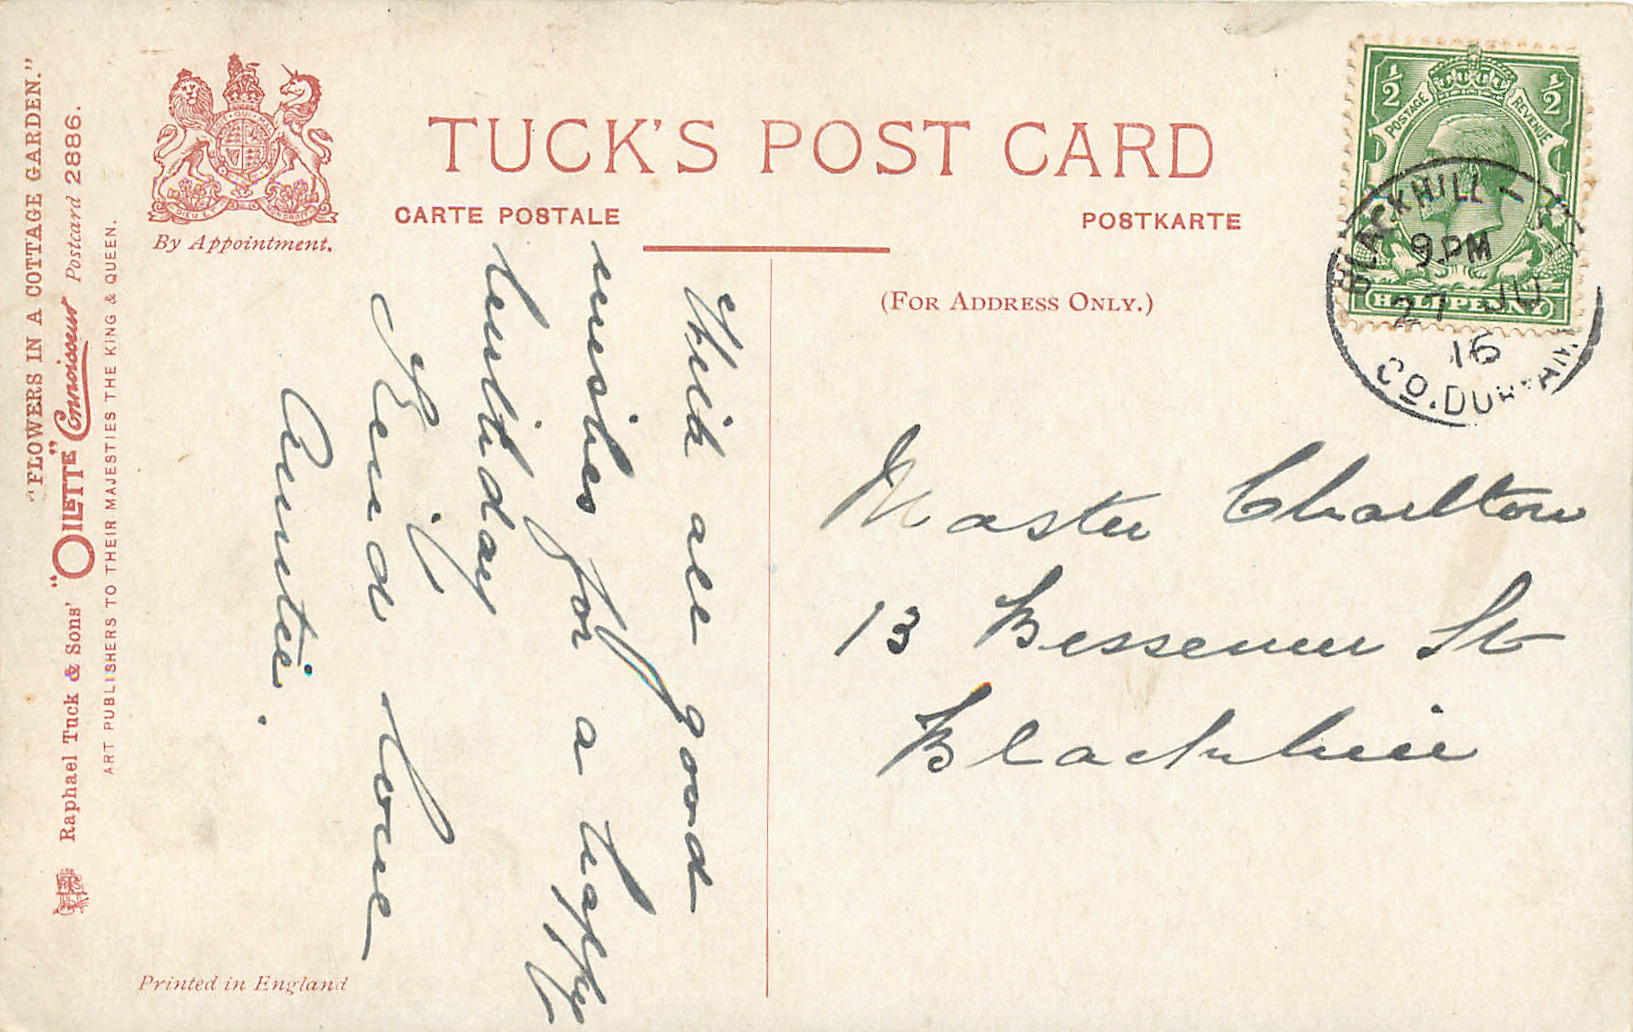 "FLOWERS IN A COTTAGE GARDEN."
Raphael Tuck & Sons' "OILETTE" Connoisseur Postcard 2886.
ART PUBLISHERS TO THEIR MAJESTIES THE KING & QUEEN.
By Appointment.
TUCK'S POST CARD
CARTE POSTALE
POSTKARTE
(FOR ADDRESS ONLY.)
1/2 1/2
POSTAGE REVENUE
HALFPENNY
BLACKHILL
9.PM
27 JU
16
CO. DURHAM
With all good
wishes for a happy
birthday
Kind love
Auntie.
Master Charlton
13 Bessemer St
Blackhill
Printed in England